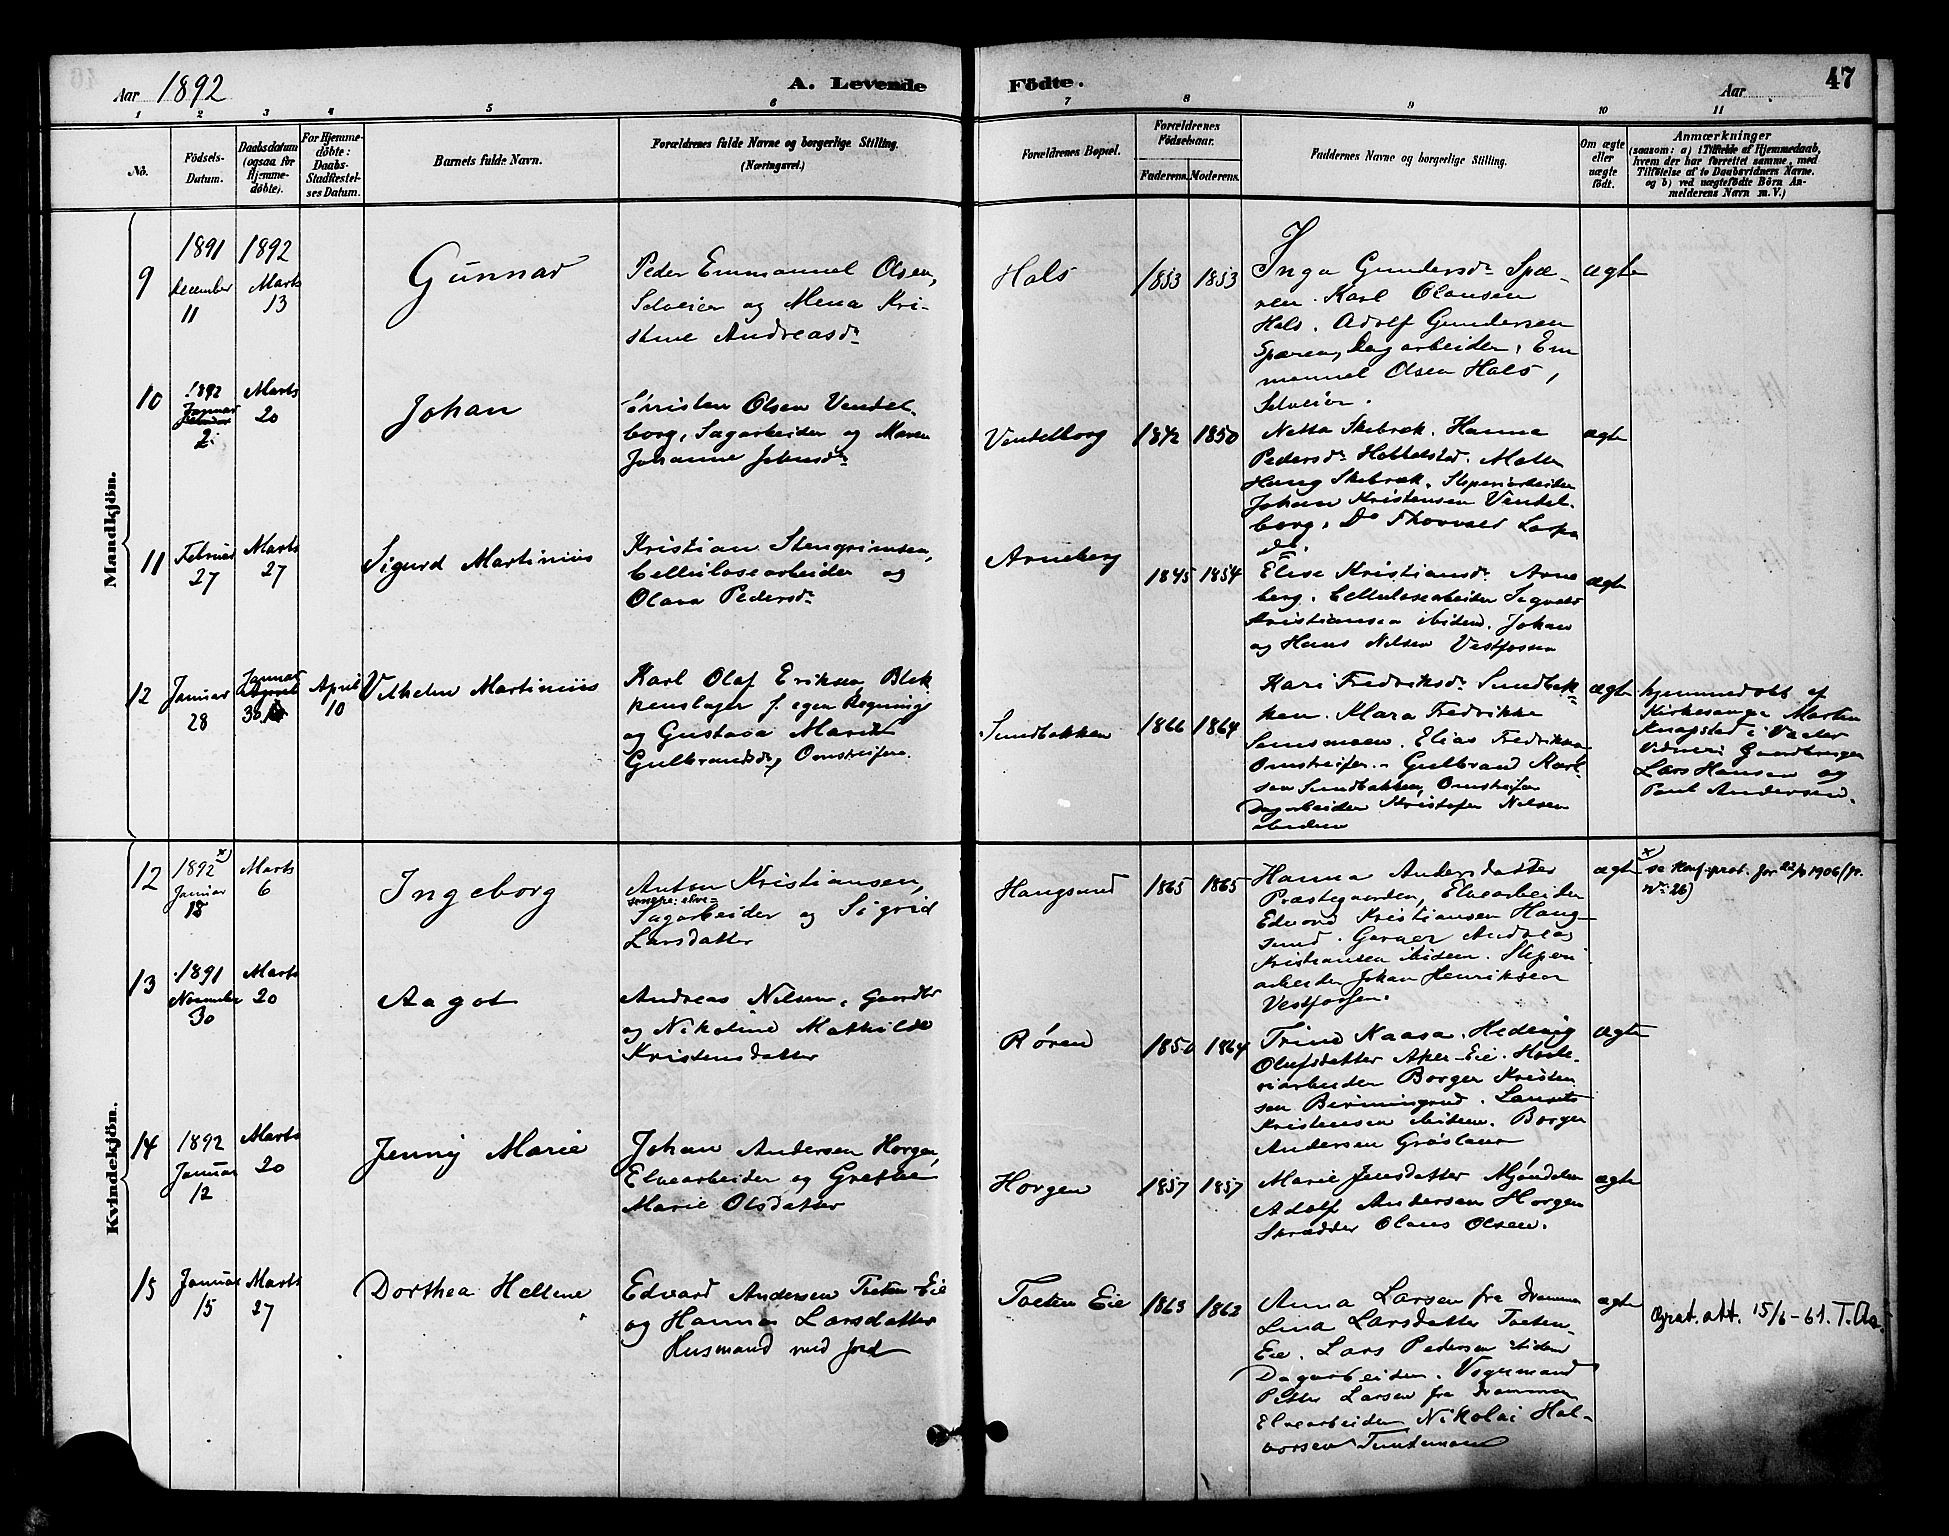 Aar 1892
A. Levende
Födte.
Aar
47
1 2 3 4 5 6 7 8 9 10 11
No.
Födsels-
Datum.
Daabsdatum
(ogsaa for
Hjemme-
döbte).
For Hjemme-
döbte:
Daabs-
Stadfæstel-
ses Datum.
Barnets fulde Navn.
Forældrenes fulde Navne og borgerlige Stilling.
(Næringsvei.)
Forældrenes Bopæl.
Forældrenes
Födselsaar.
Faderens. Moderens.
Faddernes Navne og borgerlige Stilling.
Om ægte
eller
uægte
födt.
Anmærkninger
(saasom: a) i Tilfælde af Hjemmedaab,
hvem der har forrettet samme, med
Tilföielse af to Daabsvidners Navne.
og b) ved uægtefödte Börn An-
melderens Navn m. V.)
Mandkjön.
9
1891
december
11
1892
Marts
13
Gunnar
Peder Emmanuel Olsen,
Selveier og Mena Kri-
stine Andreasdr
Hals
1853 1853
Inga Gundersdr Spæ-
ren. Karl Olausen
Hals. Adolf Gundersen
Spæren, Dagarbeider, Em
manuel Olsen Hals,
Selveier.
ægte
10
1892
Januar
2
Marts
20
Johan
Christen Olsen Vendel-
borg, Sagarbeider og Maren
Johanne Johnsdr
Vendelborg
1842 1850
Netta Skebræk. Hanna
Pedersdr Hobbelstad.
Haug Skebræk. Sliperiarbeider
Johan Kristensen Vendel-
borg, Do Thorvald
ægte
11
Februar
27
Marts
27
Sigurd Martinius
Kristian Stengrimsen,
Cellulosearbeider og
Olava Pedersdr
Arneberg
1845 1854
Elise Kristiansdr Arne
berg. Cellulosearbeider Sigvald
Kristiansen ibidem. Johan
og Hans Nilsen Vestfossen
ægte
12
Januar
28
Januar
30
April
10
Vilhelm Martinius
Karl Olaf Eriksen Blik-
kenslager f. egen Regning
og Gustava Marie
Gulbrandsdr, Omstreifere
Sundbakken
1866 1864
Kari Fredriksdr Sundbak-
ken. Mara Fredrikke
Sunsmoen. Elias Fredriksen
Omstreifer. Gulbrand Karl-
sen Sundbakken, Omstreifer
Dagarbeider Kristofer Nilsen
ibidem
ægte
hjemmedøbt af
Kirkesanger Marten
Knapstad i
Vidner: Gaardbruger
Lars Hansen og
Paul Andersen.
Kvindekjön.
12
1892 x)
Januar
12
Marts
6
Ingeborg
Anton Kristiansen,
senere: elve-
Sagarbeider og Sigrid
Larsdatter
Haugsund
1865 1865
Hanna Andersdatter
Præstegaarden, Elvearbeider
Edvard Kristiansen Haug-
sund. Garver Andreas
Kristiansen ibidem. Sliperi
arbeider Johan Henriksen
Vestfossen.
ægte
x)
se Konf.prot. for 1906 (p.
No 26)
13
1891
November
30
Marts
20
Aagot
Andreas Nilsen, Gaardbr
og Nikoline Mathilde
Kristensdatter
Røren
1850 1864
Trine Kaasa. Hedevig
Olufsdatter Aker-Eie.
arbeider Borger Kristen
sen Berningrud. Laurits
Kristensen ibidem. Borger
Andersen Grøsland
ægte
14
1892
Januar
12
Marts
20
Jenny Marie
Johan Andersen Horgen,
Elvearbeider og Grethe
Marie Olsdatter
Horgen
1857 1857
Marie Jensdatter Mjøndalen
Adolf Andersen Horgen
Skrædder Olaus Olsen.
ægte
15
Januar
15
Marts
27
Dorthea Hellene
Edvard Andersen Toeten-Eie
og Hanna Larsdatter
Husmand med Jord
Toeten Eie
1863 1862
Anna Larsen fra Drammen
Lina Larsdatter Toeten-
Eie. Lars Pedersen ibidem
Dagarbeider. Vognmand
Petter Larsen fra Drammen
Elvearbeider Nikolai Hal-
vorsen
ægte
Grat. att. 15/6-61. T. Aa.